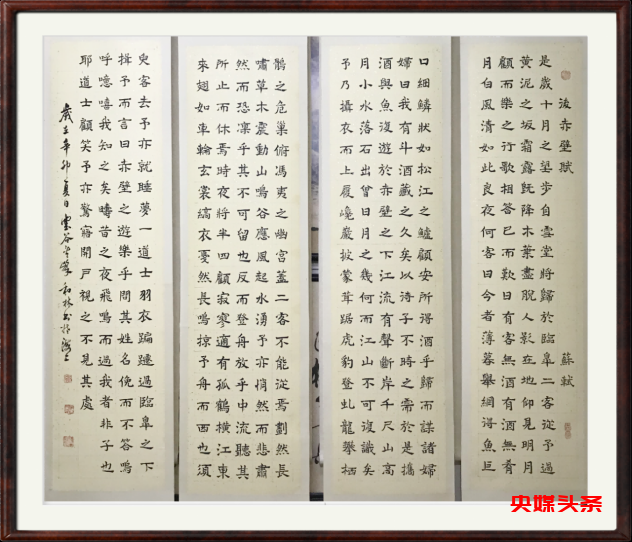 後赤壁賦 蘇軾
是歲十月之望步自雪堂將歸於臨皋二客從予過
黃泥之坂霜露既降木葉盡脫人影在地仰見明月
顧而樂之行歌相答已而歎曰有客無酒有酒無肴
月白風清如此良夜何客曰今者薄暮舉網得魚巨
口細鱗狀如松江之鱸顧安所得酒乎歸而謀諸婦
婦曰我有斗酒藏之久矣以待子不時之需於是攜
酒與魚復遊於赤壁之下江流有聲斷岸千尺山高
月小水落石出曾日月之幾何而江山不可復識矣
予乃攝衣而上履巉巖披蒙茸踞虎豹登虬龍攀栖
鶻之危巢俯馮夷之幽宮蓋二客不能從焉劃然長
嘯草木震動山鳴谷應風起水湧予亦悄然而悲肅
然而恐凜乎其不可留也反而登舟放乎中流聽其
所止而休焉時夜將半四顧寂寥適有孤鶴橫江東
來翅如車輪玄裳縞衣戛然長鳴掠予舟而西也須
臾客去予亦就睡夢一道士羽衣蹁躚過臨皋之下
揖予而言曰赤壁之遊樂乎問其姓名俛而不答嗚
呼噫嘻我知之矣疇昔之夜飛鳴而過我者非子也
耶道士顧笑予亦驚寤開戶視之不見其處
歲在辛卯夏日雲谷堂和林書於滬上
央媒头条